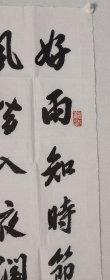 好雨知時節
風潛入夜潤